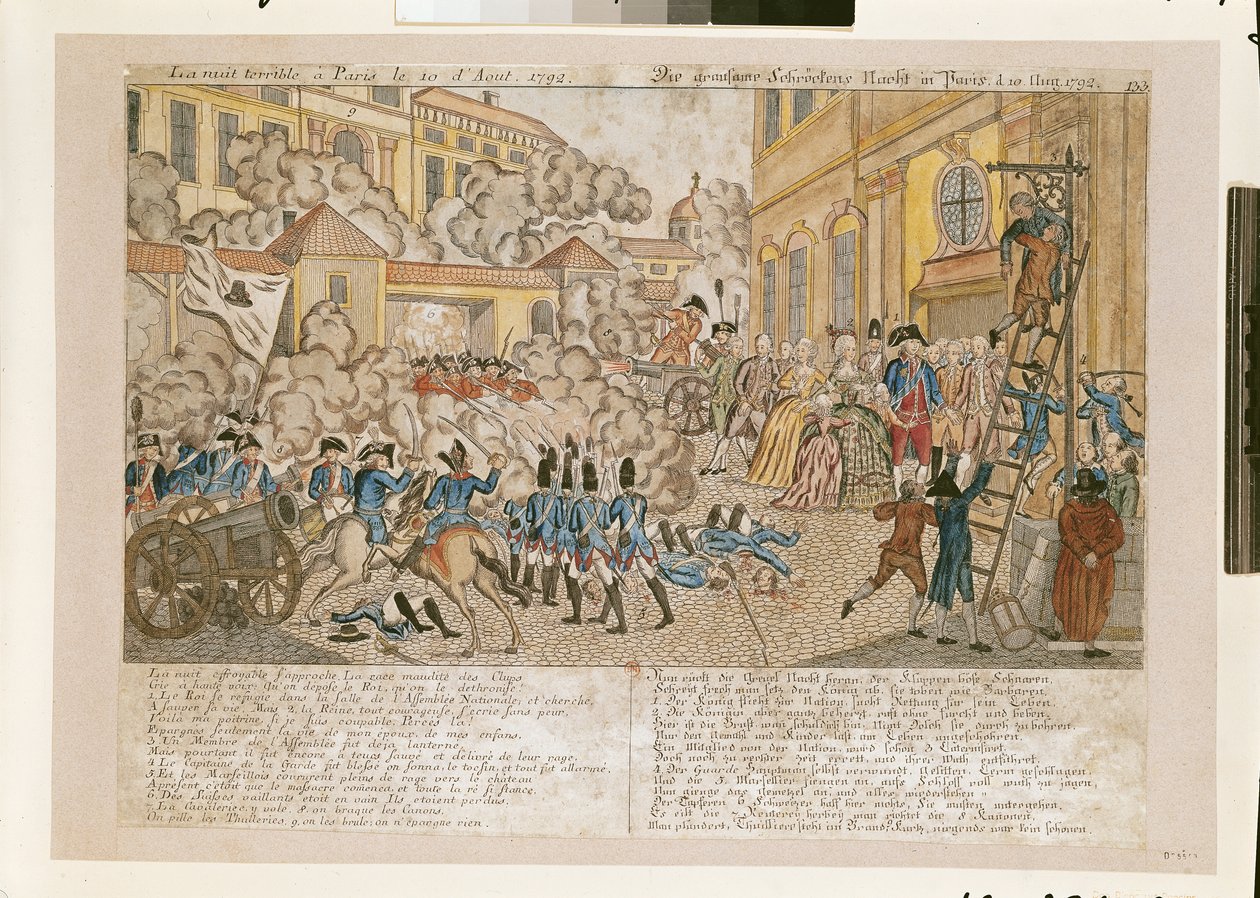 La nuit terrible à Paris le 10 d'Aout. 1792.
Die grausame Schröckens Nacht in Paris. d. 10. Aug. 1792.
133.
9
6
3
2
1
4
8
5
La nuit effroyable s'approche. La race maudite des Clups
Crie à haute voix; Qu'on depose le Roi, qu'on le dethronise!
1. Le Roi se refugie dans la salle de l'Assemblée Nationale; et cherche,
A sauver sa vie. Mais 2, la Reine, tout courageuse, s'ecrie sans peur,
Voilà ma poitrine, si je suis coupable, Percés la!
Epargnes seulement la vie de mon epoux, de mes enfans.
3 Un Membre de l'Assemblée fut deja lanterné,
Mais pourtant il fut encore à tems sauvé et delivré de leur rage.
4 Le Capitaine de la Garde fut blessé on sonna, le tocsin, et tout fut allarmé.
5. Et les Marseillois coururent pleins de rage vers le château
Apresent c'etoit que le massacre comenca, et toute la
6. Des Suisses vaillants etoit en vain Ils etoient perdus.
7. La Cavallerie, y vole, 8. on braque les Canons,
On pille les Thuilleries, 9. on les brule; on n'épargne rien.
Nun rückt die Greuel Nacht heran, der Kluppen böse Schaaren,
Schreyt frech man setz den König ab, sie toben wie Barbaren.
1. Der König flieht zur Nation sucht Rettung für sein Leben,
2. Die Königin aber gantz beherzt, ruft ohne furcht und beben.
Hier ist die Brust, wan schuldich bin, Nimt Dolch sie durch zubohren.
Nur den Gemahl und Kinder last am Leben ungeschohren.
Ein Mitglied von der Nation, wurd schon 3 Laternisirt,
Doch noch zu rechter Zeit errett, und ihrer Wuth entführet.
4. Der Guarde Hauptman selbst verwundt, Lerm geschlagen,
Und die 5. Marsellier fiengen an, aufs Schloss voll wuth zu jagen,
Nun gienge das gemetzel an, und alles
Der Tapferen 6 Schweitzer half hier nichts, Sie musten untergehen.
Es eilt die 7 Reiterey herbey man richtet die 8 Kanonen,
Man plündert, Thuillerie steht im Brand, 9 Kurtz, nirgends war kein schonen.